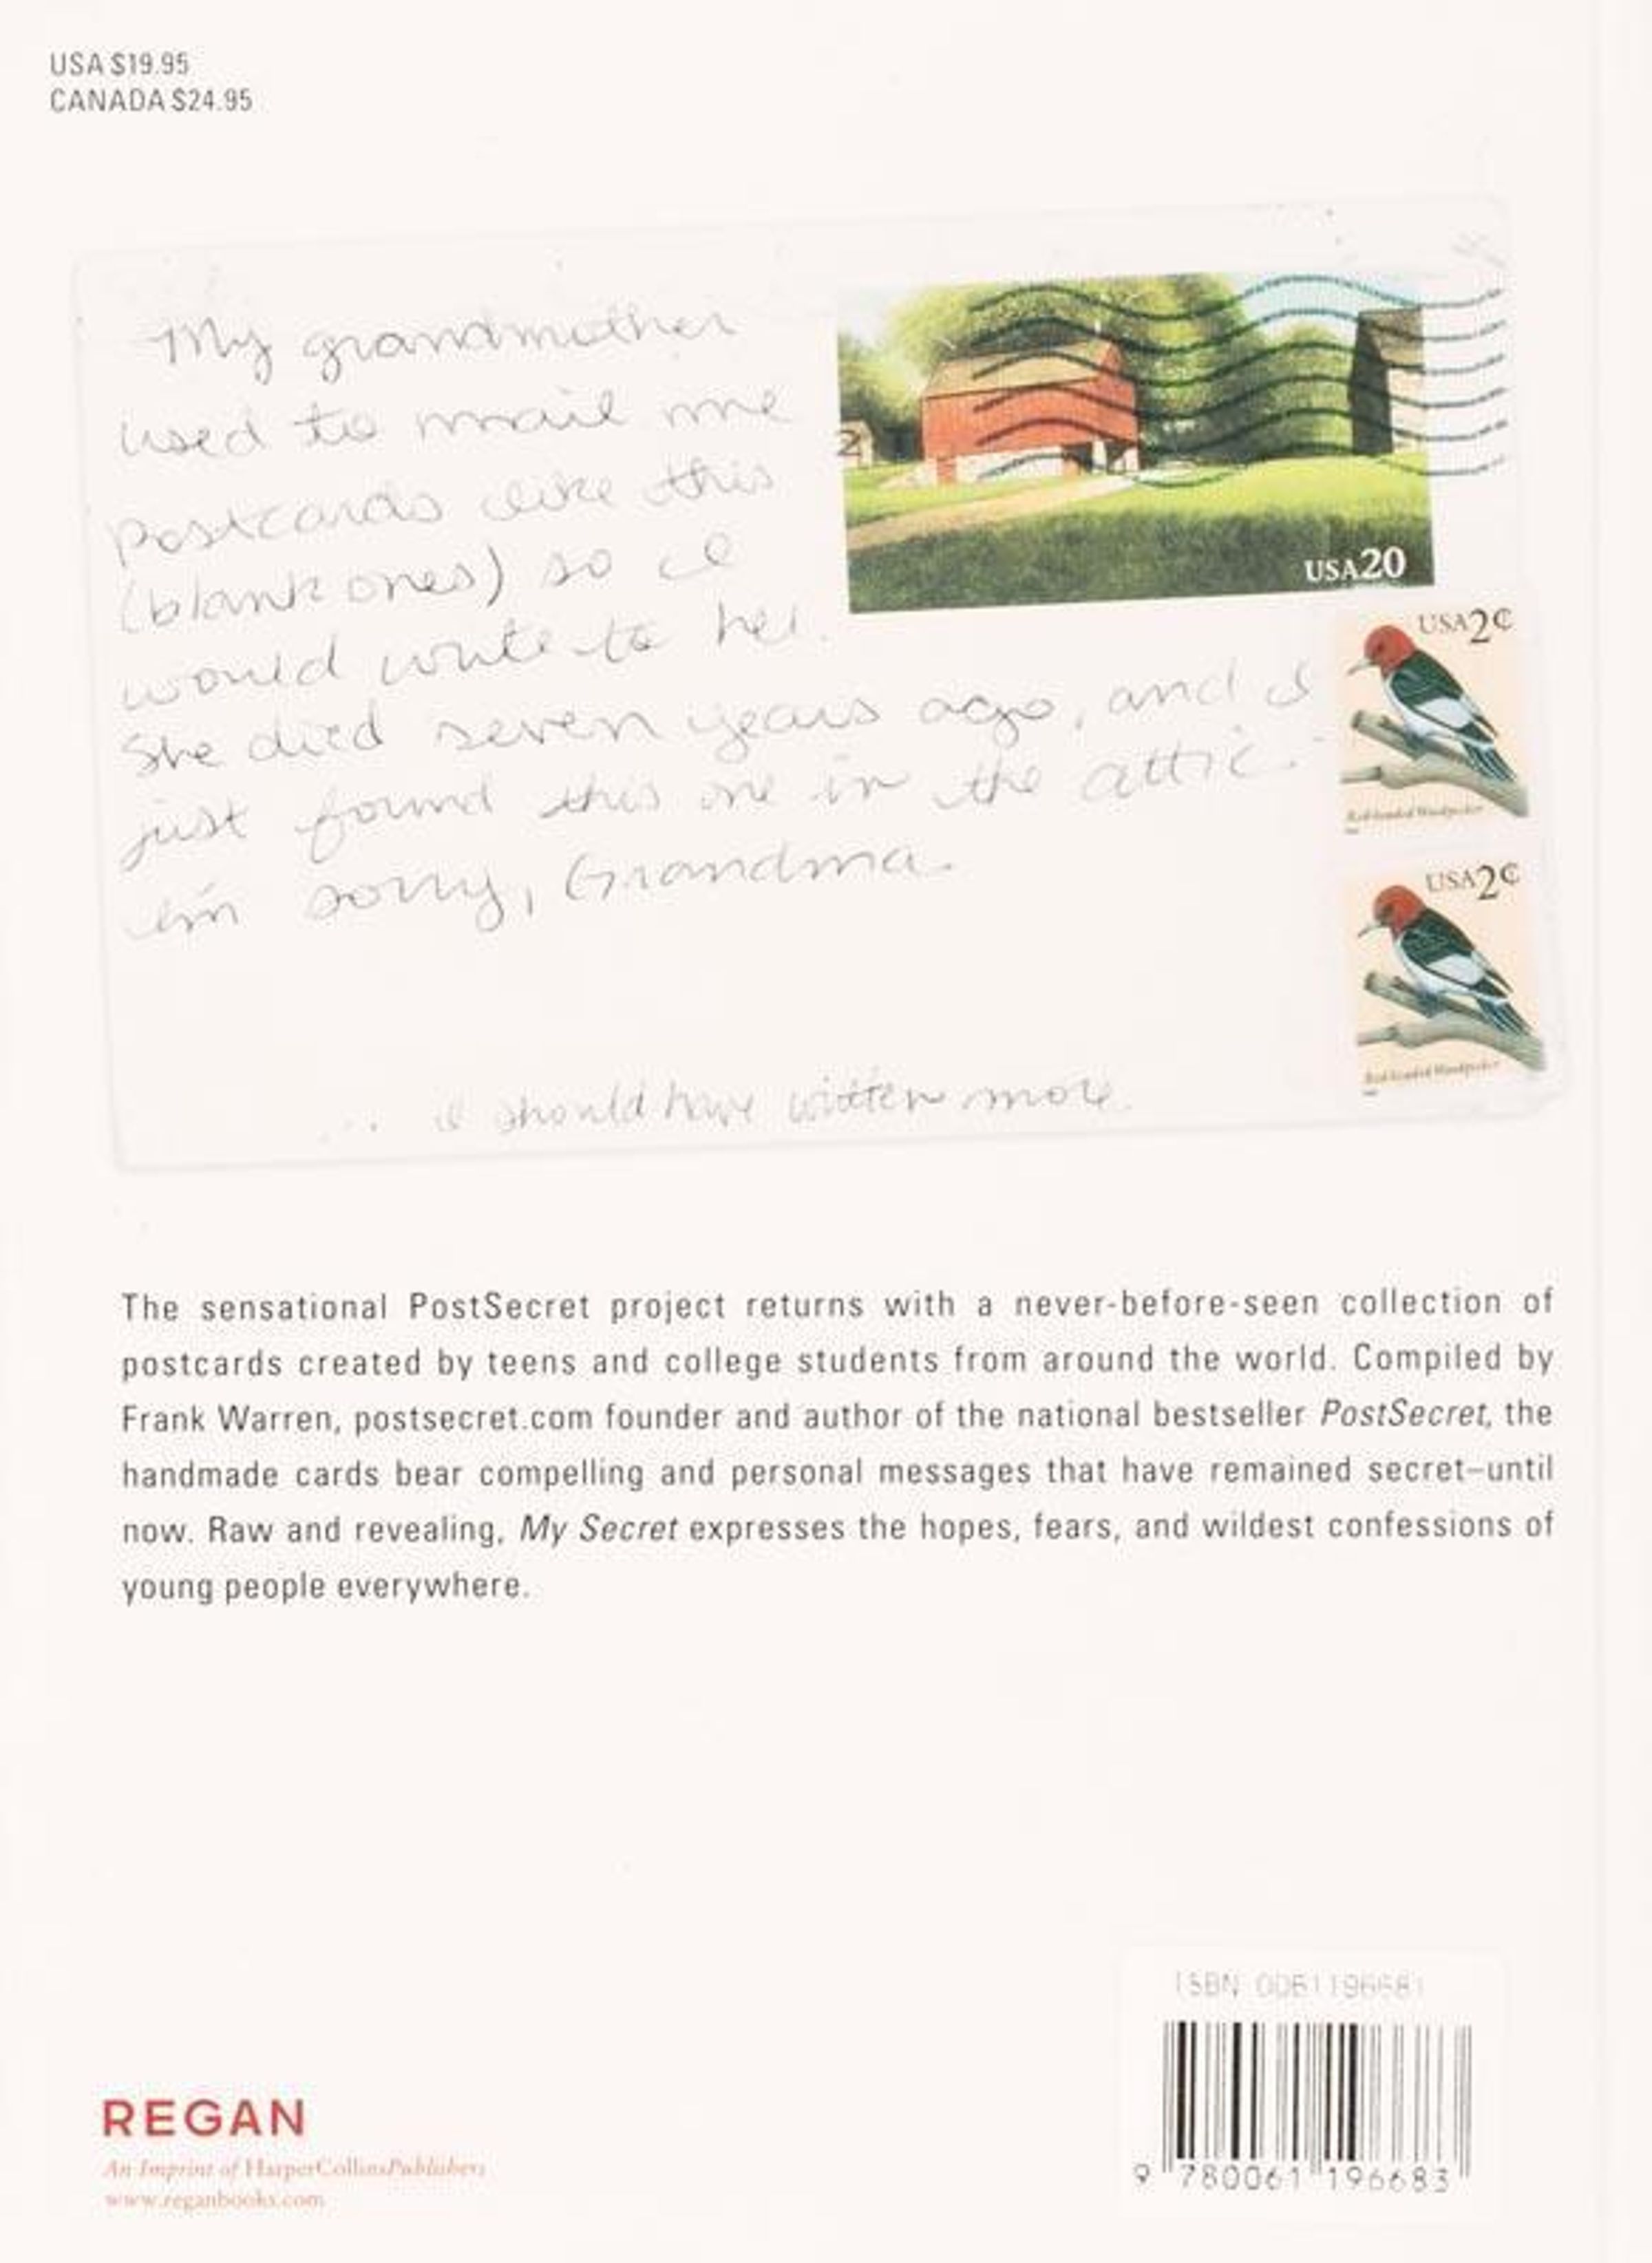 USA $19.95
CANADA $24.95
My grandmother
used to mail me
postcards like this
(blank ones) so I
would write to her.
She died seven years ago, and I
just found this one in the attic.
I'm sorry, Grandma.
... I should have written more.
USA20
USA2¢
Red-headed Woodpecker
USA2¢
Red-headed Woodpecker
The sensational PostSecret project returns with a never-before-seen collection of
postcards created by teens and college students from around the world. Compiled by
Frank Warren, postsecret.com founder and author of the national bestseller PostSecret, the
handmade cards bear compelling and personal messages that have remained secret–until
now. Raw and revealing, My Secret expresses the hopes, fears, and wildest confessions of
young people everywhere.
REGAN
An Imprint of HarperCollinsPublishers
www.reganbooks.com
ISBN 0061196681
9 780061 196683